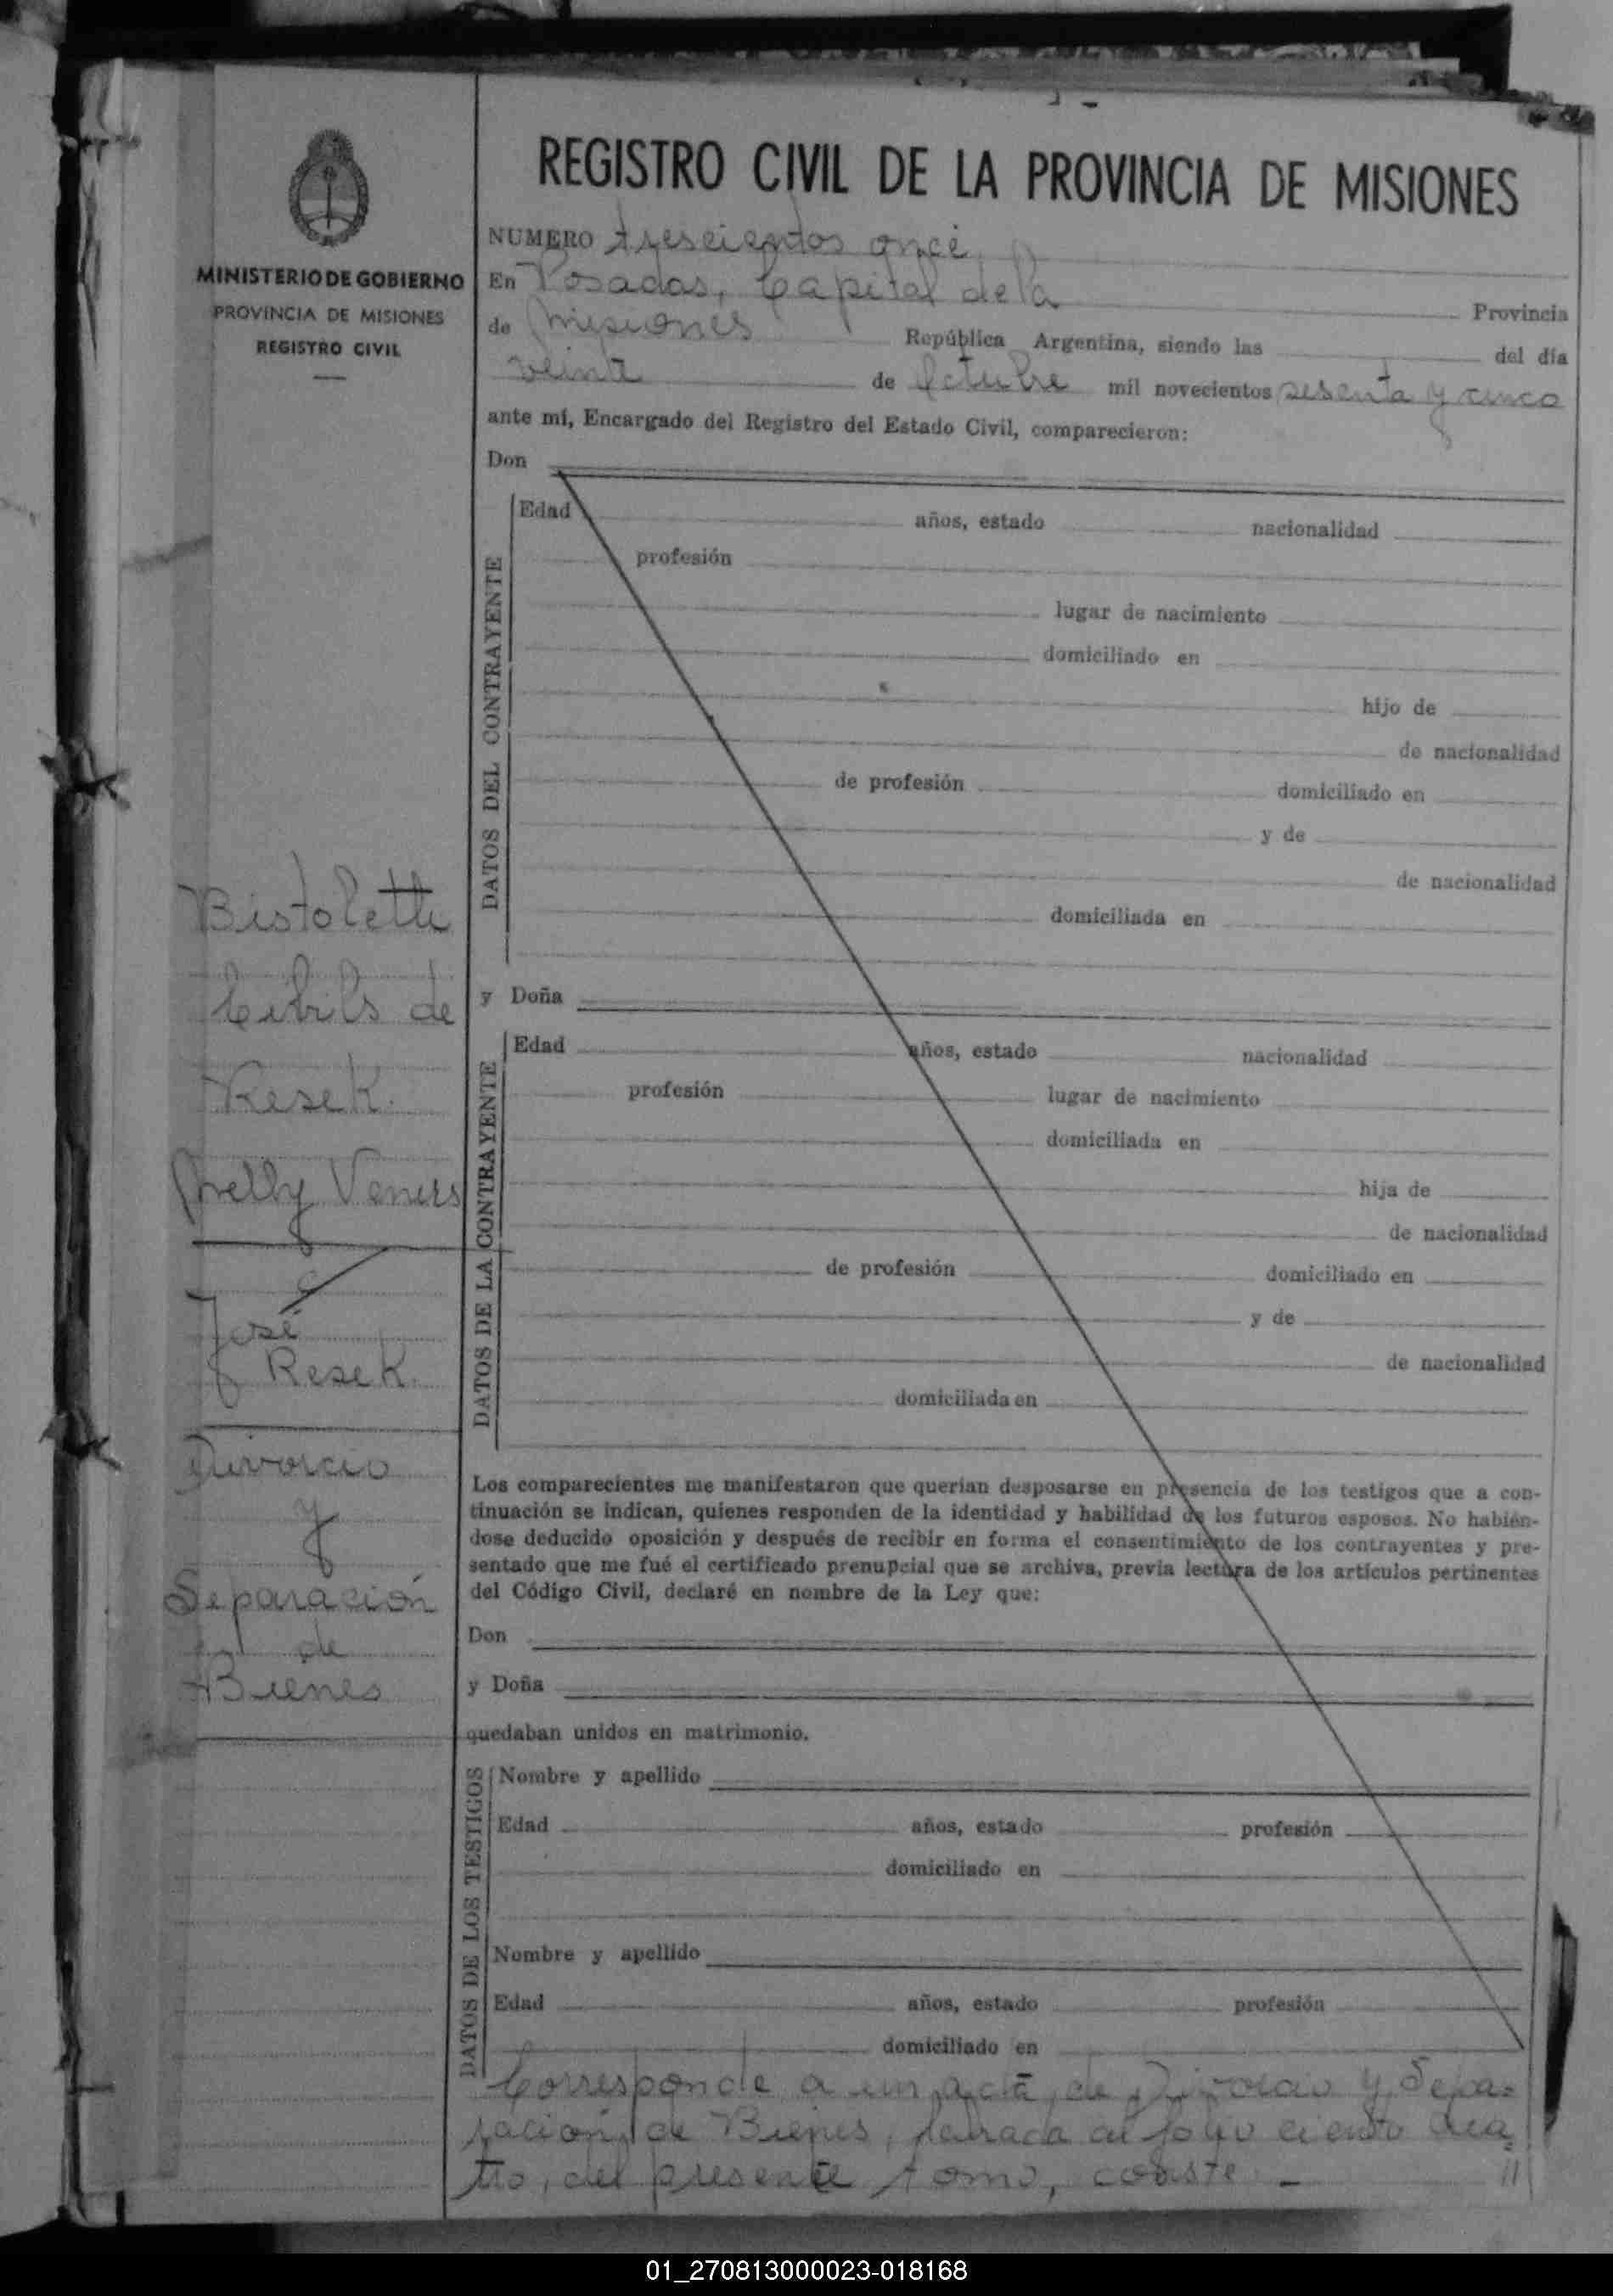 REGISTRO CIVIL DE LA PROVINCIA DE MISIONES
MINISTERIO DE GOBIERNO
PROVINCIA DE MISIONES
REGISTRO CIVIL
NUMERO trescientos once
En Posadas, Capital de la Provincia
de Misiones República Argentina, siendo las del día
veinte de Octubre mil novecientos sesenta y cinco
ante mí, Encargado del Registro del Estado Civil, comparecieron:
Don
DATOS DEL CONTRAYENTE
Edad años, estado nacionalidad
profesión
lugar de nacimiento
domiciliado en
hijo de
de nacionalidad
de profesión domiciliado en
y de
de nacionalidad
domiciliada en
Bistoletti
Cibils de
Resek.
Nelly Venus
José
Resek.
Divorcio
y
Separación
de
Bienes
y Doña
DATOS DE LA CONTRAYENTE
Edad años, estado nacionalidad
profesión lugar de nacimiento
domiciliada en
hija de
de nacionalidad
de profesión domiciliado en
y de
de nacionalidad
domiciliada en
Los comparecientes me manifestaron que querían desposarse en presencia de los testigos que a con-
tinuación se indican, quienes responden de la identidad y habilidad de los futuros esposos. No habién-
dose deducido oposición y después de recibir en forma el consentimiento de los contrayentes y pre-
sentado que me fué el certificado prenupcial que se archiva, previa lectura de los artículos pertinentes
del Código Civil, declaré en nombre de la Ley que:
Don
y Doña
quedaban unidos en matrimonio.
DATOS DE LOS TESTIGOS
Nombre y apellido
Edad años, estado profesión
domiciliado en
Nombre y apellido
Edad años, estado profesión
domiciliado en
Corresponde a un acta de Divorcio y Sepa=
ración de Bienes, labrada al folio ciento cua=
tro, del presente tomo, conste. -
01_270813000023-018168